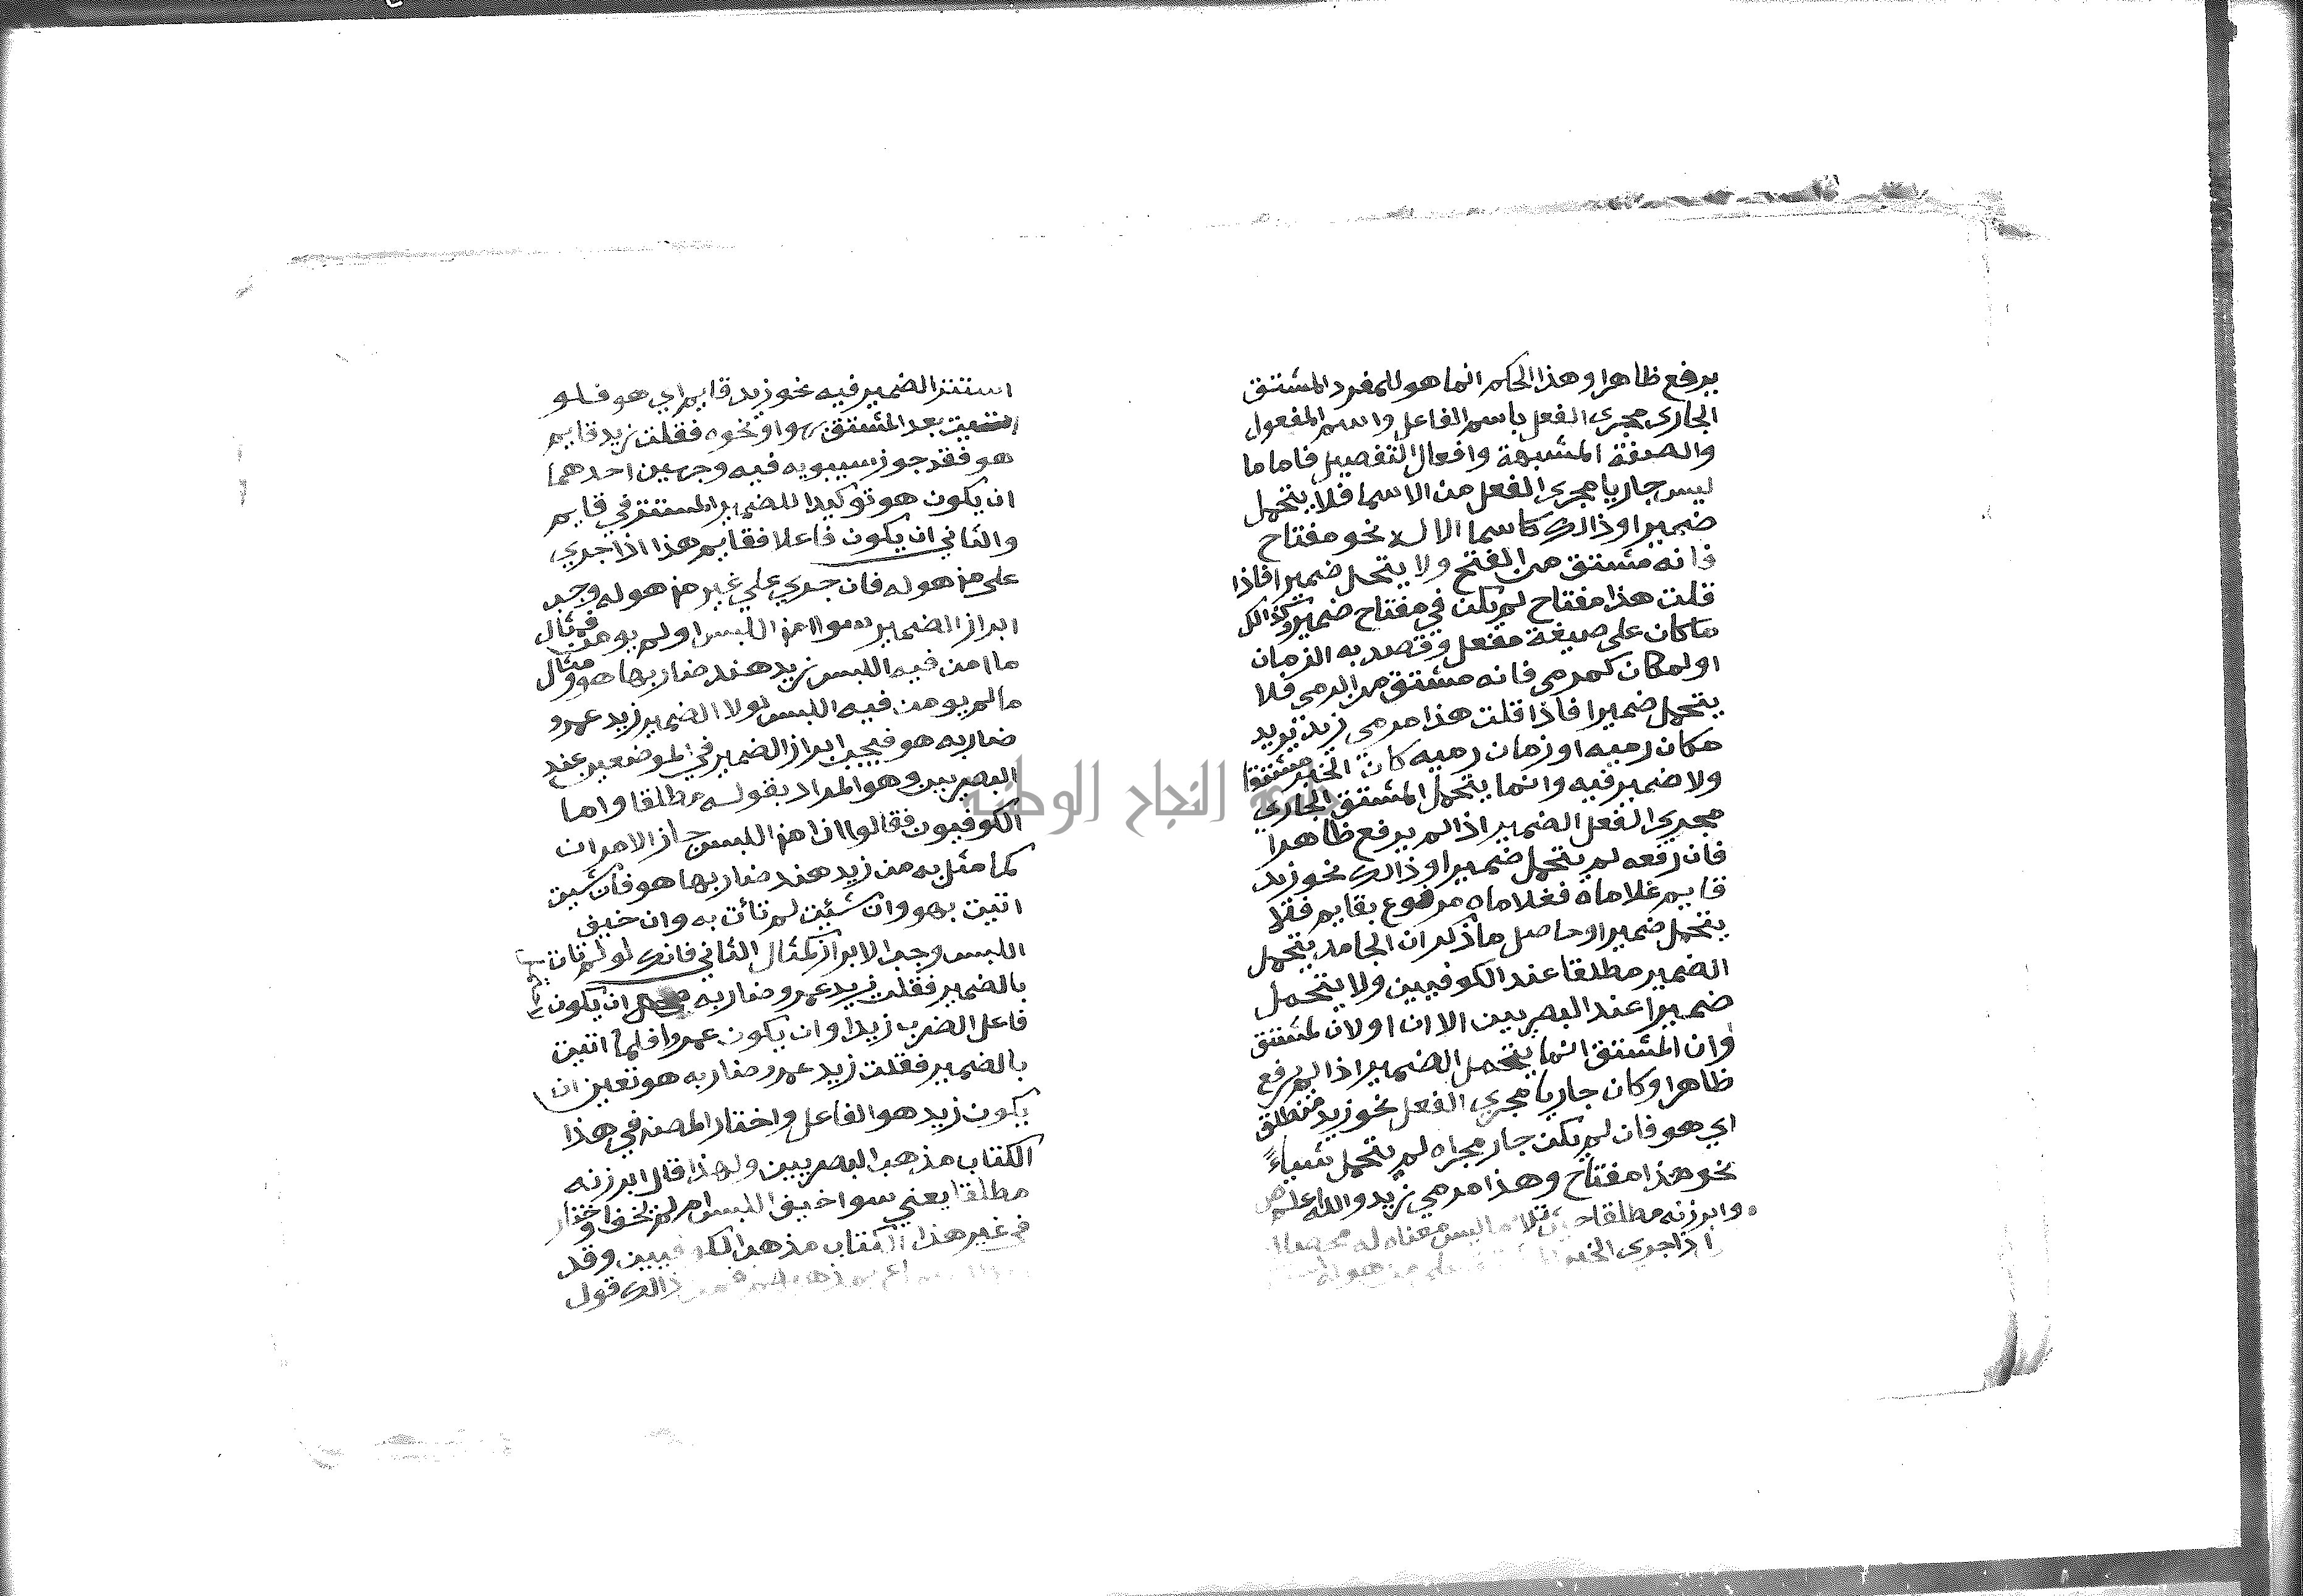 يرفع ظاهرا وهذا الحكم انما هو للمفرد المشتق
الجاري مجرى الفعل باسم الفاعل واسم المفعول
والصفة المشبهة وافعال التفصيل فاما ما
ليس جاريا مجرى الفعل من الاسما فلا يتحمل
ضميرا وذالك كاسما الالة نحو مفتاح
فانه مشتق من الفتح ولا يتحمل ضميرا فاذا
قلت هذا مفتاح لم يكن في مفتاح ضمير وكذالك
ما كان على صيغة مفعل وقصد به الزمان
اولمكان كمرمى فانه مشتق من الرمى فلا
يتحمل ضميرا فاذا قلت هذا مرمى زيد تريد
مكان رميه او زمان رميه كان الخبر مشتقا
ولا ضمير فيه وانما يتحمل المشتق الجاري
مجرى الفعل الضمير اذا لم يرفع ظاهرا
فان رفعه لم يتحمل ضميرا وذالك نحو زيد
قايم غلاماه فغلاماه مرفوع بقايم فلا
يتحمل ضميرا وحاصل ما ذكر ان الجامد يتحمل
الضمير مطلقا عند الكوفيين ولا يتحمل
ضميرا عند البصريين الا ان اولان لمشتق
وان المشتق انما يتحمل الضمير اذا لم يرفع
ظاهرا وكان جاريا مجرى الفعل نحو زيد منطلق
اي هو فان لم يكن جار مجراه لم يتحمل شيياءً
نحو هذا مفتاح وهذا مرمي زيد والله اعلم ص
وابرزنه مطلقا حيث تلا ما ليس معناه له محصلا
اذا جرى الخبر على من هو له
استتر الضمير فيه نحو زيد قايم اي هو فلو
اتيت بعد المشتق بهو او نحوه فقلت زيد قايم
هو فقد جوز سيبويه فيه وجهين احدهما
ان يكون هو توكيدا للضمير المستتر في قايم
والثاني ان يكون فاعلا فقايم هذا اذا جرى
على من هو له فان جرى علي غير من هو له وجب
ابراز الضمير سوا امن اللبس او لم يومن فمثال
ما امن فيه اللبس زيد هند ضاربها هو ومثال
ما لم يومن فيه اللبس لولا الضمير زيد عمرو
ضاربه هو فيجب ابراز الضمير في الموضعين عند
البصريين وهو المراد بقوله مطلقا واما
الكوفيون فقالوا ان امن اللبس جاز الامران
كما مثل به من زيد هند ضاربها هو فان شيت
اتيت بهو وان شيئت لم تائت به وان خيف
اللبس وجب الابراز كمثال الثاني فانك لو لم تات
بالضمير فقلت زيد عمرو ضاربه ان يكون
فاعل الضرب زيدا وان يكون عمروا فلما اتيت
بالضمير فقلت زيد عمرو ضاربه هو تعين ان
يكون زيد هو الفاعل واختار المصنف في هذا
الكتاب مذهب البصريين ولهذا قال ابرزنه
مطلقا يعني سوا خيف اللبس ام لم يخف واختار
في غير هذا الكتاب مذهب الكوفيين وقد
ذالك قول